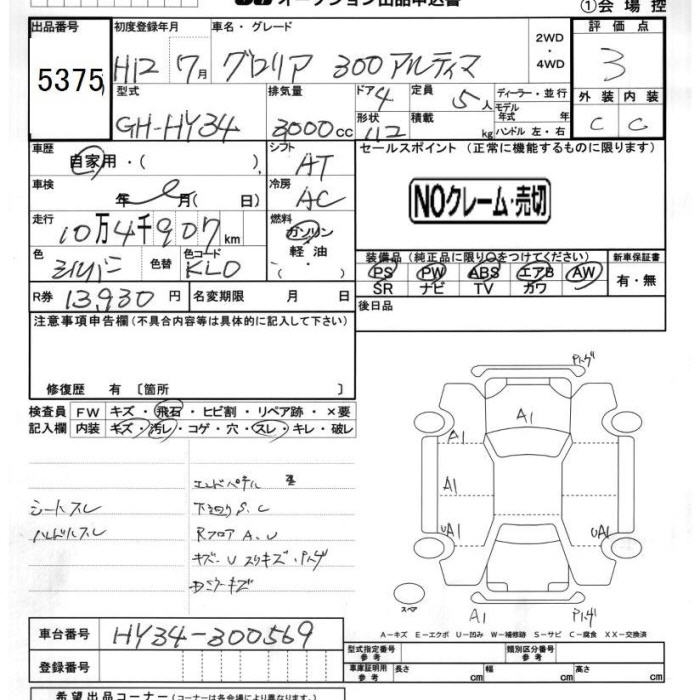 オークション出品申込書
①会場控
出品番号 初度登録年月 車名・グレード 2WD・4WD 評価点
5375 H12 7月 グロリア 300アルティマ 3
型式 排気量 ドア 4 定員 5人 ディーラー・並行 外装 内装
GH-HY34 3000cc 形状 積載 kg モデル年式 年 ハンドル 左・右 C C
車歴 シフト セールスポイント (正常に機能するものに限ります)
自家用・( ) AT
車検 冷房
年 月(日) AC NOクレーム・売切
走行 燃料
10万4千907km ガソリン・軽油
色 色替 色コード 装備品(純正品に限り○をつけてください) 新車保証書
シルバー KL0 PS PW ABS エアB AW 有・無
SR ナビ TV カワ
R券 13,930円 名変期限 月 日 後日品
注意事項申告欄(不具合内容等は具体的に記入して下さい)
修復歴 有〔箇所 〕
検査員 FW キズ・飛石・ヒビ割・リペア跡・×要
記入欄 内装 キズ・汚レ・コゲ・穴・スレ・キレ・破レ
シートスレ
ハンドルスレ
下回りS.C
RフロアA.U
キズ・U スリキズ・ハトグ
Dミラーキズ
ハトグ
A1
A1
A1
UA1 UA1
スペア
A1 ハトグ
A－キズ E－エクボ U－凹み W－補修跡 S－サビ C－腐食 XX－交換済
車台番号 HY34-300569
型式指定番号 参考 類別区分番号 参考
登録番号
車庫証明用 参考 長さ cm 幅 cm 高さ cm
希望出品コーナー(コーナーは各会場により異なります)